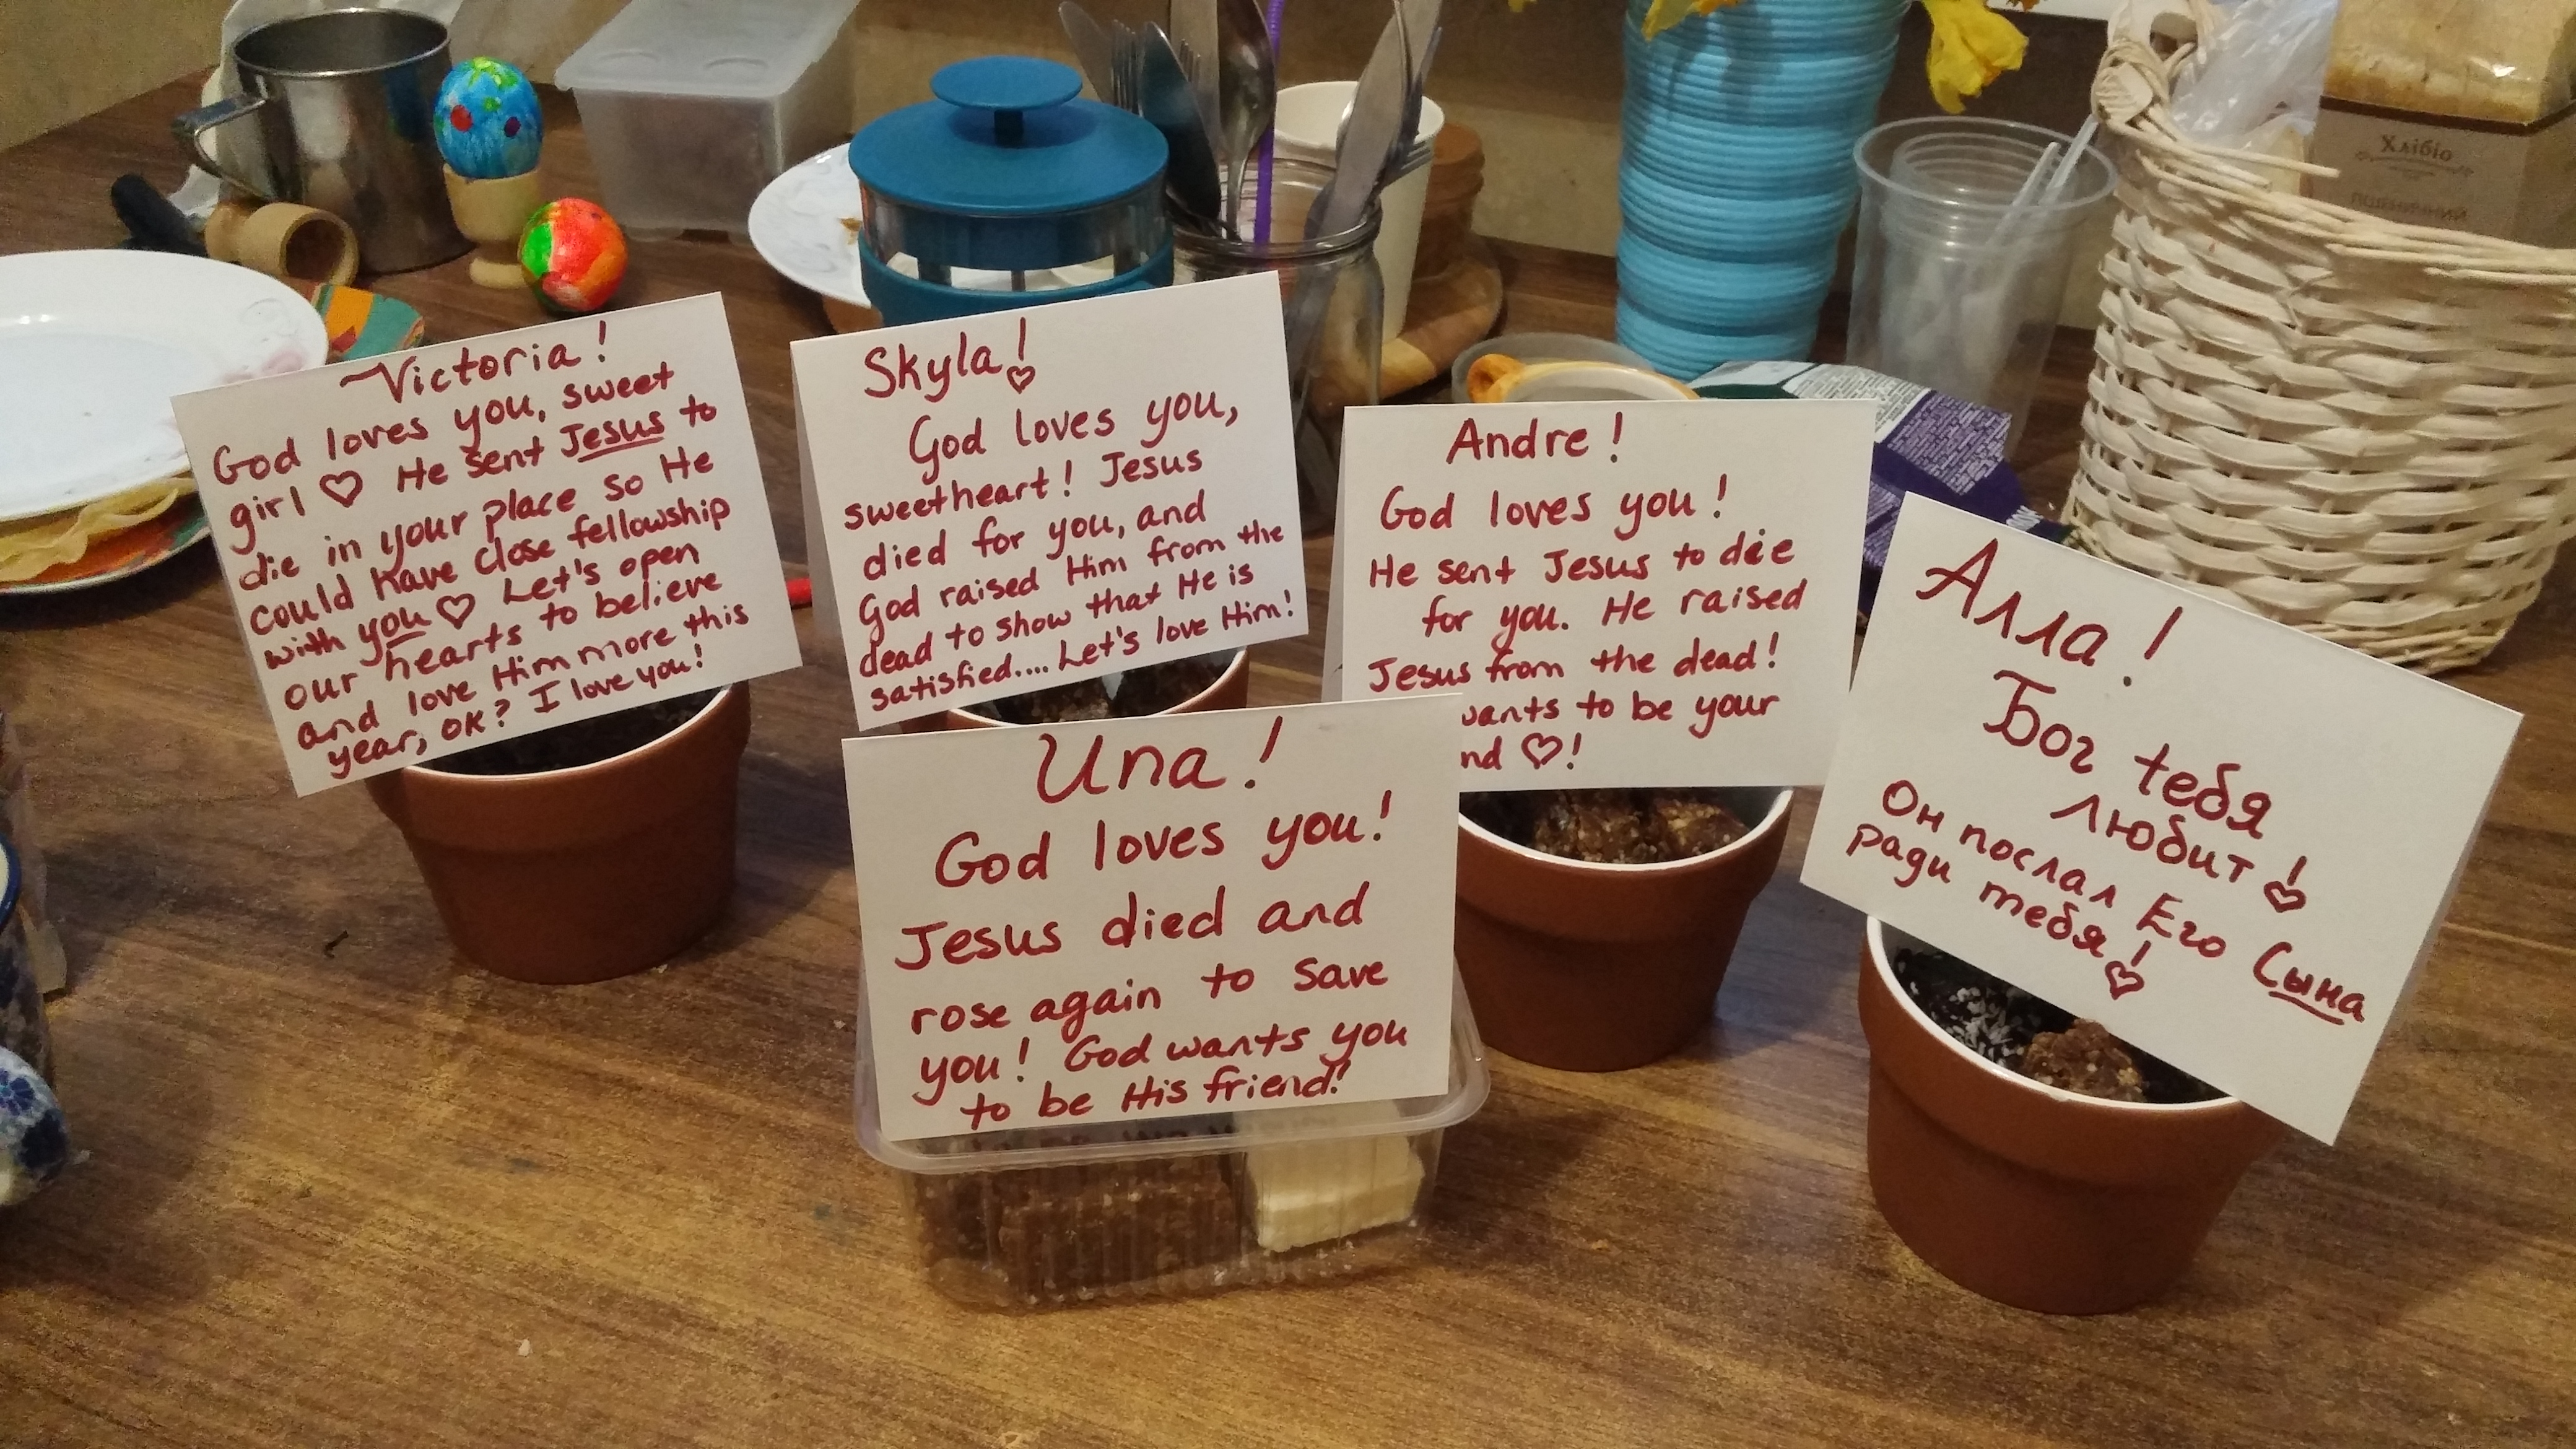 Victoria!
God loves you, sweet
girl ♡ He sent Jesus to
die in your place so He
could have close fellowship
with you ♡ Let's open
our hearts to believe
and love Him more this
year, OK? I love you!
Skyla!
God loves you,
sweetheart! Jesus
died for you, and
God raised Him from the
dead to show that He is
satisfied.... Let's love Him!
Andre!
God loves you!
He sent Jesus to die
for you. He raised
Jesus from the dead!
wants to be your
nd ♡!
Una!
God loves you!
Jesus died and
rose again to save
you! God wants you
to be His friend!
Алла!
Бог тебя
любит!
Он послал Его Сына
ради тебя!
Хлібіо
ПШЕНИЧНИЙ